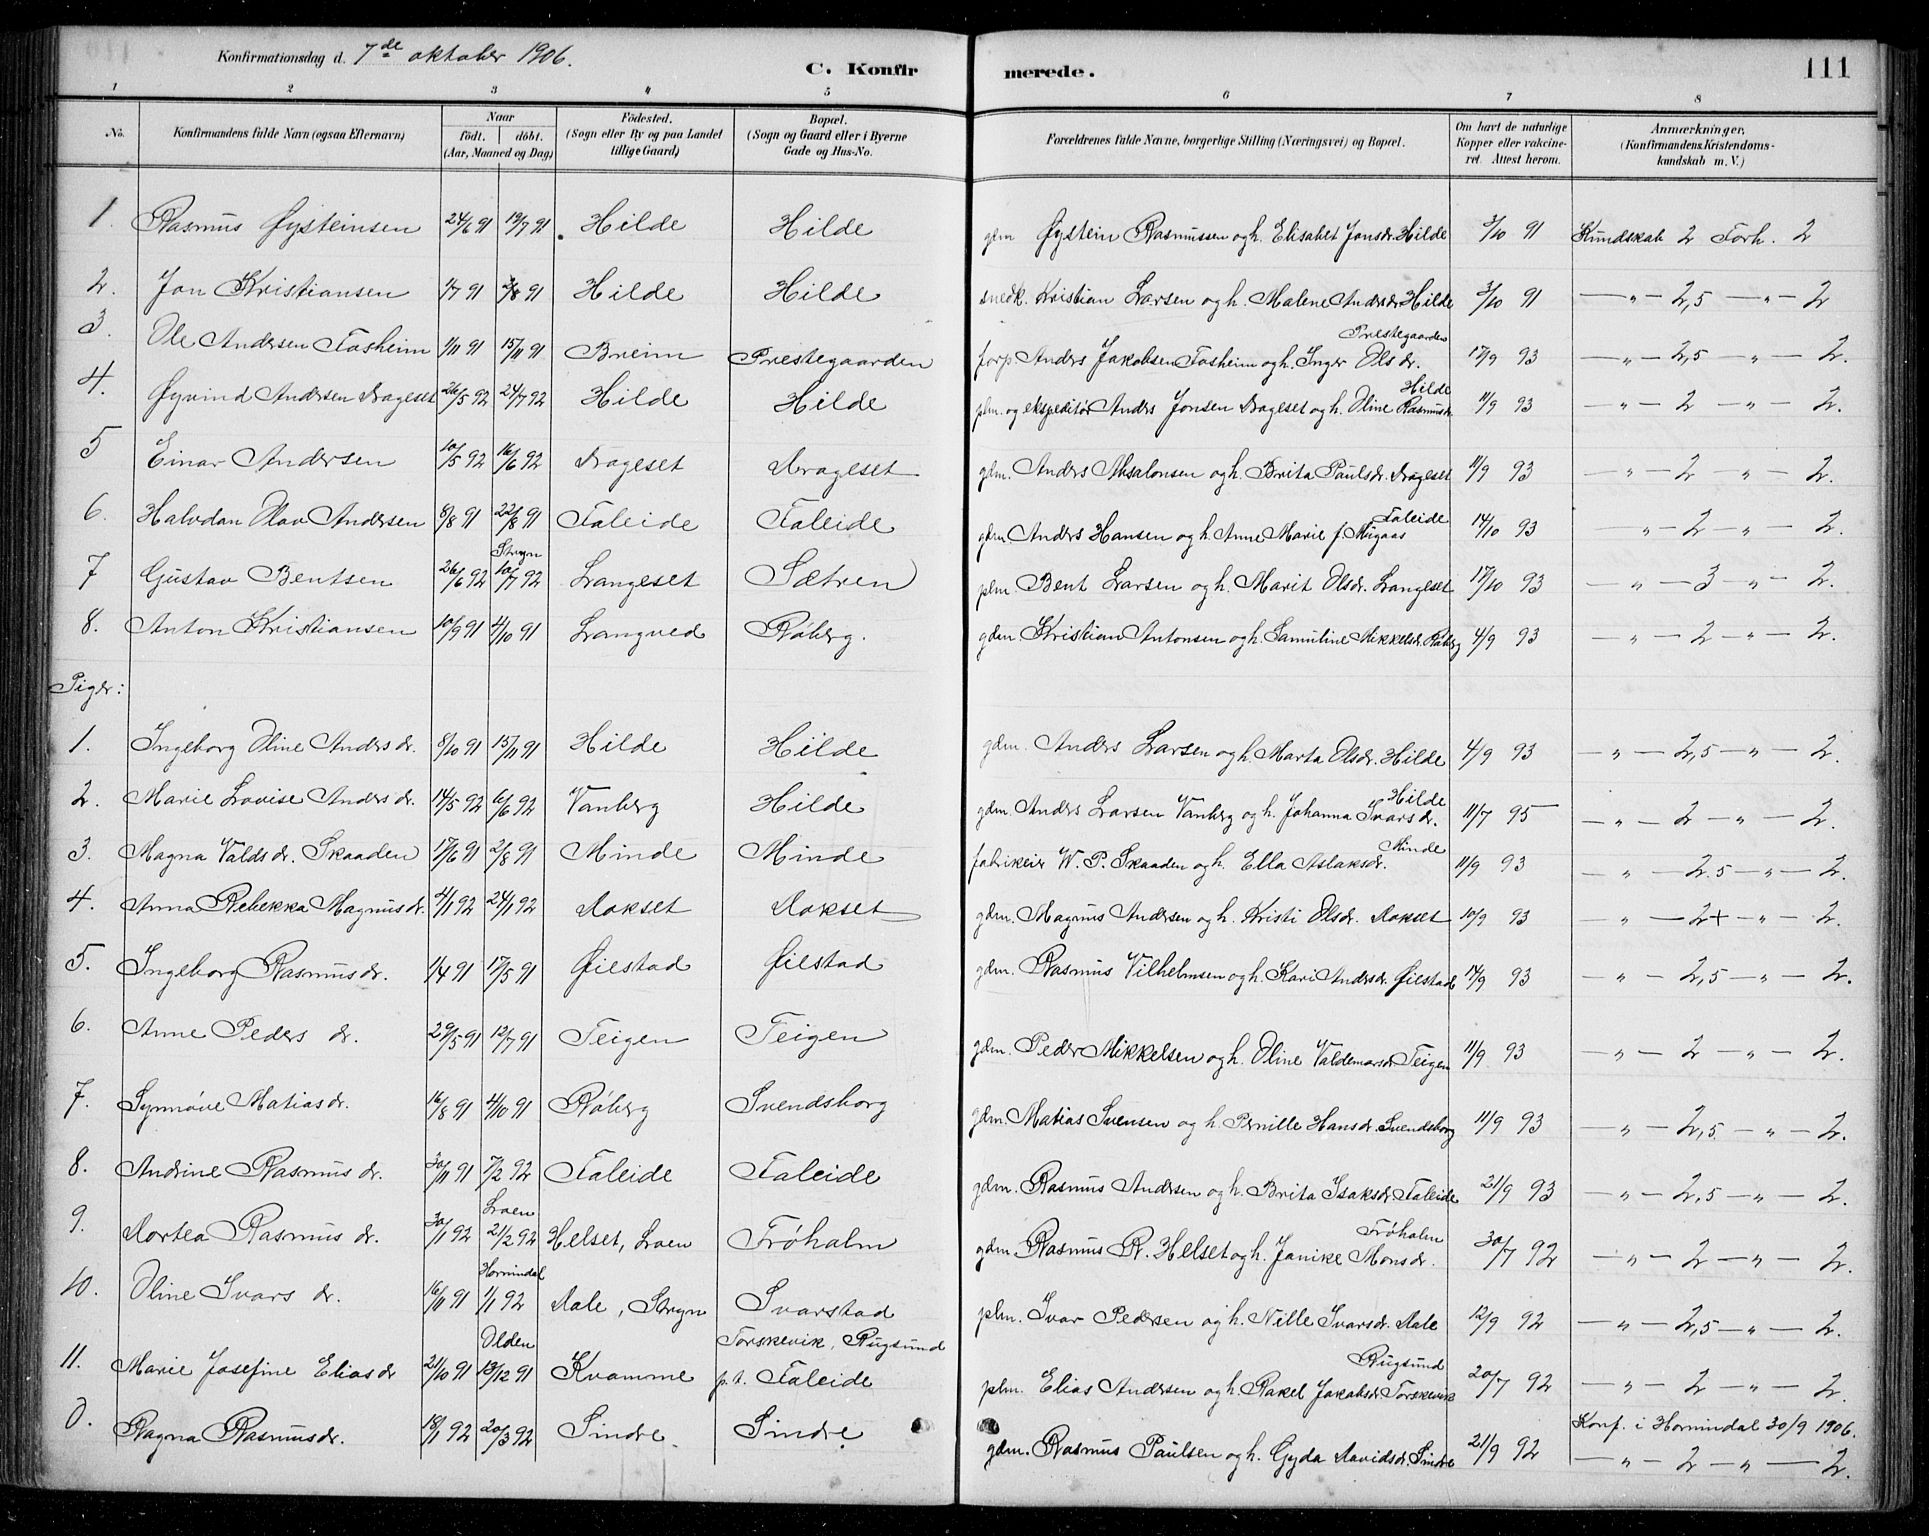 Konfirmationsdag d. 7de oktober 1906.
C. Konfirmerede.
111
1 2 3 4 5 6 7 8
No. Konfirmandens fulde Navn (ogsaa Efternavn) Naar födt. döbt. (Aar, Maaned og Dag) Födested. (Sogn eller By og paa Landet tillige Gaard) Bopæl. (Sogn og Gaard eller i Byerne Gade og Hus-No. Forældrenes fulde Navne, borgerlige Stilling (Næringsvei) og Bopæl. Om havt de naturlige Kopper eller vakcineret. Attest herom. Anmærkninger, (Konfirmandens Kristendomskundskab m. V.)
1. Rasmus Øysteinsen 24/6 91 19/7 91 Hilde Hilde gdm Øystein Rasmussen og h. Elisabet Jonsdr. Hilde 3/10 91 Kundskab 2 Forh. 2
2. Jon Kristiansen 1/7 91 2/8 91 Hilde Hilde snedk. Kristian Larsen og h. Malene Andrsdr. Hilde 3/10 91 — „ — 2,5 — „ — 2
3. Ole Andersen Fosheim 1/11 91 15/11 91 Breim Prestegaarden forp. Anders Jakobsen Fosheim og h. Inger Olsdr. Prestegaarden 17/9 93 — „ — 2,5 — „ — 2.
4. Øyvind Andersen Drageset 26/5 92 24/7 92 Hilde Hilde plm. og ekspeditør Anders Jonsen Drageset og h. Oline Rasmusdr. Hilde 11/9 93 — „ — 2 — „ — 2.
5 Einar Andersen 10/5 92 16/6 92 Drageset Drageset gdm. Anders Absalonsen og h. Brita Paulsdr. Drageset 11/9 93 — „ — 2 — „ — 2.
6. Halvdan Olav Andersen 8/8 91 22/8 91 Faleide Faleide gdm. Anders Hansen og h. Anne Marie f. Mugaas Faleide 14/10 93 — „ — 2 — „ — 2.
7 Gustav Bentsen 26/6 92 Stryn 10/7 92 Langeset Sætren plm. Bent Larsen og h. Marit Olsdr. Langeset 17/10 93 — „ — 3 — „ — 2.
8. Anton Kristiansen 10/9 91 4/10 91 Langved Røberg. gdm. Kristian Antonsen og h. Samuline Mikkelsdr. Røberg 4/9 93 — „ — 2 — „ — 2.
Piger:
1. Ingeborg Oline Andersdr. 8/10 91 15/11 91 Hilde Hilde gdm. Anders Larsen og h. Marta Olsdr. Hilde 4/9 93 — „ — 2,5 — „ — 2.
2. Marie Lovise Andersdr. 14/5 92 6/6 92 Vanberg Hilde gdm. Anders Larsen Vanberg og h. Johanna Ivarsdr. Hilde 11/7 95 — „ — 2 — „ — 2.
3. Magna Valdsdr. Skaaden 17/6 91 2/8 91 Minde Minde fabrikeir W. P. Skaaden og h. Ella Aslaksdr. Minde 11/9 93 — „ — 2.5 — „ — 2.
4. Anna Rebekka Magnusdr. 4/1 92 24/1 92 Dokset Dokset gdm. Magnus Andersen og h. Kristi Olsdr. Dokset 10/9 93 — „ — 2+ — „ — 2.
5. Ingeborg Rasmusdr. 1/4 91 17/5 91 Øilestad Øilestad gdm. Rasmus Vilhelmsen og h. Kari Andrsdr. Øilestad 17/9 93 — „ — 2,5 — „ — 2.
6. Anne Pedersdr. 29/5 91 12/7 91 Teigen Teigen gdm. Peder Mikkelsen og h. Oline Valdemarsdr. Teigen 11/9 93 — „ — 2 — „ — 2.
7. Synnøve Matiasdr. 16/8 91 4/10 91 Røberg Svendsborg gdm. Matias Svensen og h. Pernille Hansdr. Svendsborg 11/9 93 — „ — 2,5 — „ — 2.
8. Andrine Rasmusdr. 30/11 91 7/2 92 Faleide Faleide gdm. Rasmus Andersen og h. Brita Isaksdr. Faleide 21/9 93 — „ — 2,5 — „ — 2.
9. Dortea Rasmusdr. 30/1 92 Loen 21/2 92 Helset, Loen Frøholm gdm. Rasmus R. Helset og h. Janike Monsdr. Frøholm 30/7 92 — „ — 2 — „ — 2.
10. Oline Ivarsdr. 16/11 91 Hornindal 1/1 92 Dale, Stryn Svarstad plm. Ivar Pedersen og h. Nille Ivarsdr. Dale 12/9 92 — „ — 2,5 — „ — 2.
11. Marie Josefine Eliasdr 21/10 91 Olden 13/12 91 Kvamme Torskevik, Rugsund p.t. Faleide plm. Elias Andersen og h. Rakel Jakobsdr. Torskevik Rugsund 20/7 92 — „ — 2 — „ — 2.
0. Ragna Rasmusdr. 18/1 92 20/3 92 Sindre Sindre gdm. Rasmus Paulsen og h. Gyda Davidsdr. Sindre 21/9 92 Konf. i Hornindal 30/9 1906. — „ — 2 — „ — 2.